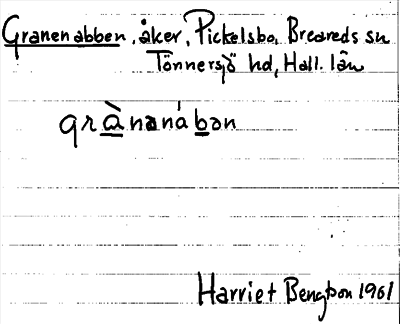 Granenabben, åker, Pickelsbo, Breareds sn
Tönnersjö hd, Hall. län
grànəná bən
Harriet Bengtson 1961